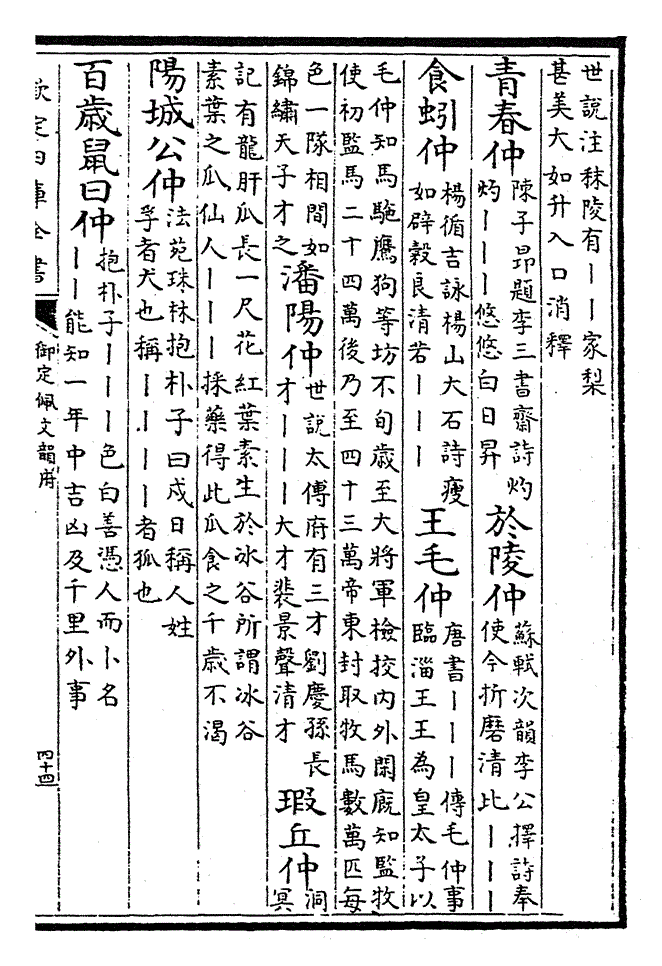 世說注秣陵有丨丨家梨
甚美大如升入口消釋
青春仲
陳子昂題李三書齋詩灼
灼丨丨丨悠悠白日昇
於陵仲
蘇軾次韻李公擇詩奉
使今折磨清比丨丨丨
食蚓仲
楊循吉詠楊山大石詩瘦
如辟穀良清若丨丨丨
王毛仲
唐書丨丨丨傳毛仲事
臨淄王王為皇太子以
毛仲知馬駞鷹狗等坊不旬歲至大將軍檢挍內外閑廐知監牧
使初監馬二十四萬後乃至四十三萬帝東封取牧馬數萬匹每
色一隊相間如
錦繡天子才之
潘陽仲
世說太傅府有三才劉慶孫長
才丨丨丨大才裴景聲清才
瑕丘仲
洞
冥
記有龍肝瓜長一尺花紅葉素生於冰谷所謂冰谷
素葉之瓜仙人丨丨丨採藥得此瓜食之千歲不渴
陽城公仲
法苑珠林抱朴子曰戍日稱人姓
字者犬也稱丨丨丨丨者狐也
百歲鼠曰仲
抱朴子丨丨丨色白善憑人而卜名
丨丨能知一年中吉凶及千里外事
欽定四庫全書
御定佩文韻府
四十四